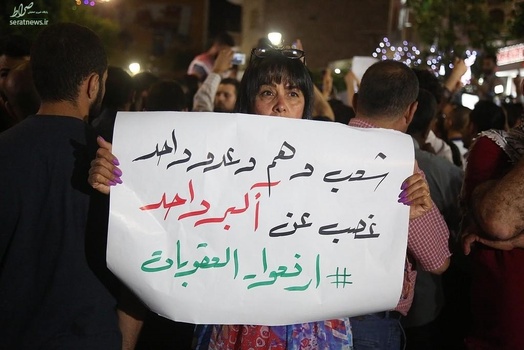 صراط
seratnews.ir
شعب وهم وعدو واحد
غصب عن أكبر واحد
#ارفعوا_العقوبات